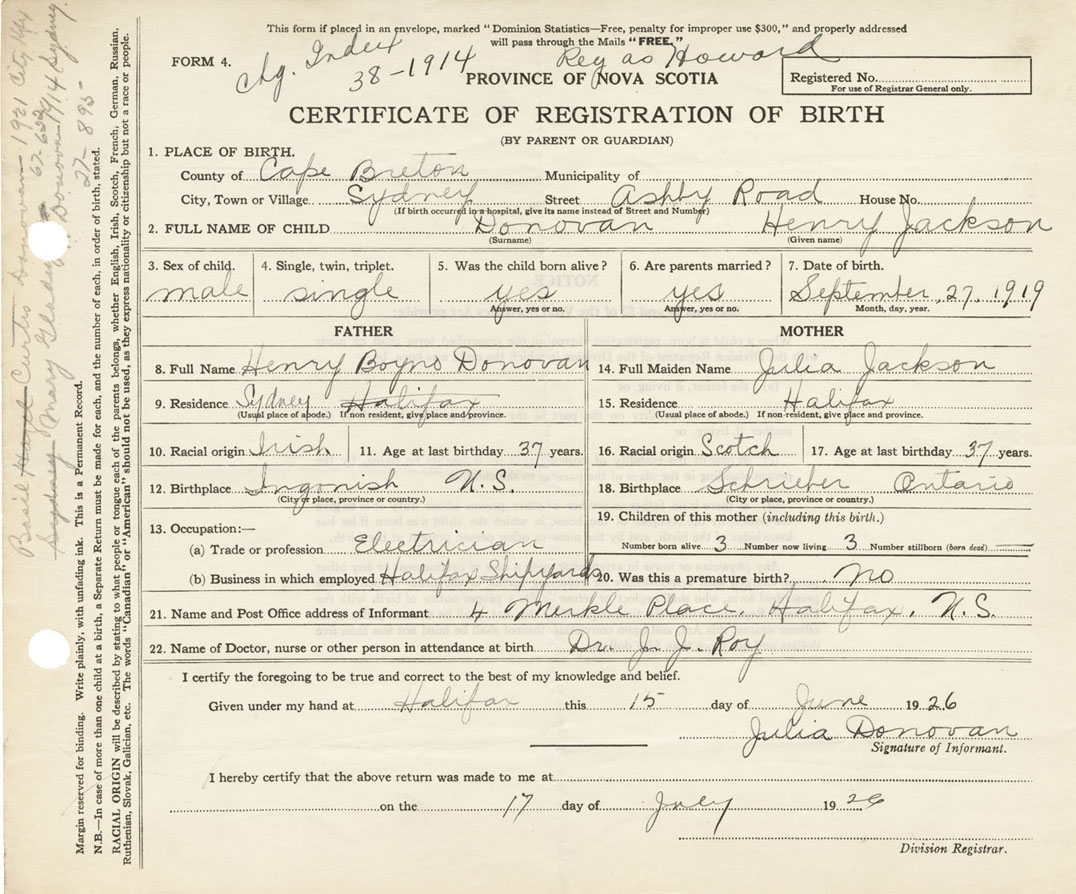 This form if placed in an envelope, marked "Dominion Statistics—Free, penalty for improper use $300," and properly addressed
will pass through the Mails "FREE."
Index
38-1914
Reg as Howard
FORM 4.
PROVINCE OF NOVA SCOTIA
Registered No.
For use of Registrar General only.
CERTIFICATE OF REGISTRATION OF BIRTH
(BY PARENT OR GUARDIAN)
1. PLACE OF BIRTH.
County of Cape Breton Municipality of
City, Town or Village Sydney Street Ashby Road House No.
(If birth occurred in a hospital, give its name instead of Street and Number)
2. FULL NAME OF CHILD Donovan Henry Jackson
(Surname) (Given name)
3. Sex of child. 4. Single, twin, triplet. 5. Was the child born alive? 6. Are parents married? 7. Date of birth.
male single yes yes September 27, 1919
Answer, yes or no. Answer, yes or no. Month, day, year.
FATHER MOTHER
8. Full Name Henry Boyno Donovan 14. Full Maiden Name Julia Jackson
9. Residence Sydney Halifax 15. Residence Halifax
(Usual place of abode.) If non-resident, give place and province. (Usual place of abode.) If non-resident, give place and province.
10. Racial origin Irish 11. Age at last birthday 37 years. 16. Racial origin Scotch 17. Age at last birthday 37 years.
12. Birthplace Ingonish N.S. 18. Birthplace Schrieber Ontario
(City or place, province or country.) (City or place, province or country.)
13. Occupation:— 19. Children of this mother (including this birth.)
(a) Trade or profession Electrician Number born alive 3 Number now living 3 Number stillborn (born dead)
(b) Business in which employed Halifax Shipyards 20. Was this a premature birth? no
21. Name and Post Office address of Informant 4 Merkle Place, Halifax, N.S.
22. Name of Doctor, nurse or other person in attendance at birth Dr. J. J. Roy
I certify the foregoing to be true and correct to the best of my knowledge and belief.
Given under my hand at Halifax this 15 day of June 1926
Julia Donovan
Signature of Informant.
I hereby certify that the above return was made to me at
on the 17 day of July 1926
Division Registrar.
Margin reserved for binding. Write plainly, with unfading ink. This is a Permanent Record.
N.B.—In case of more than one child at a birth, a Separate Return must be made for each, and the number of each, in order of birth, stated.
RACIAL ORIGIN will be described by stating to what people or tongue each of the parents belongs, whether English, Irish, Scotch, French, German, Russian,
Ruthenian, Slovak, Galician, etc. The words "Canadian" or "American" should not be used, as they express nationality or citizenship but not a race or people.
Basil Curtis Donovan - 1921 City Hfx
Sydney Mary Gladys Donovan 1914 Sydney
27-893-